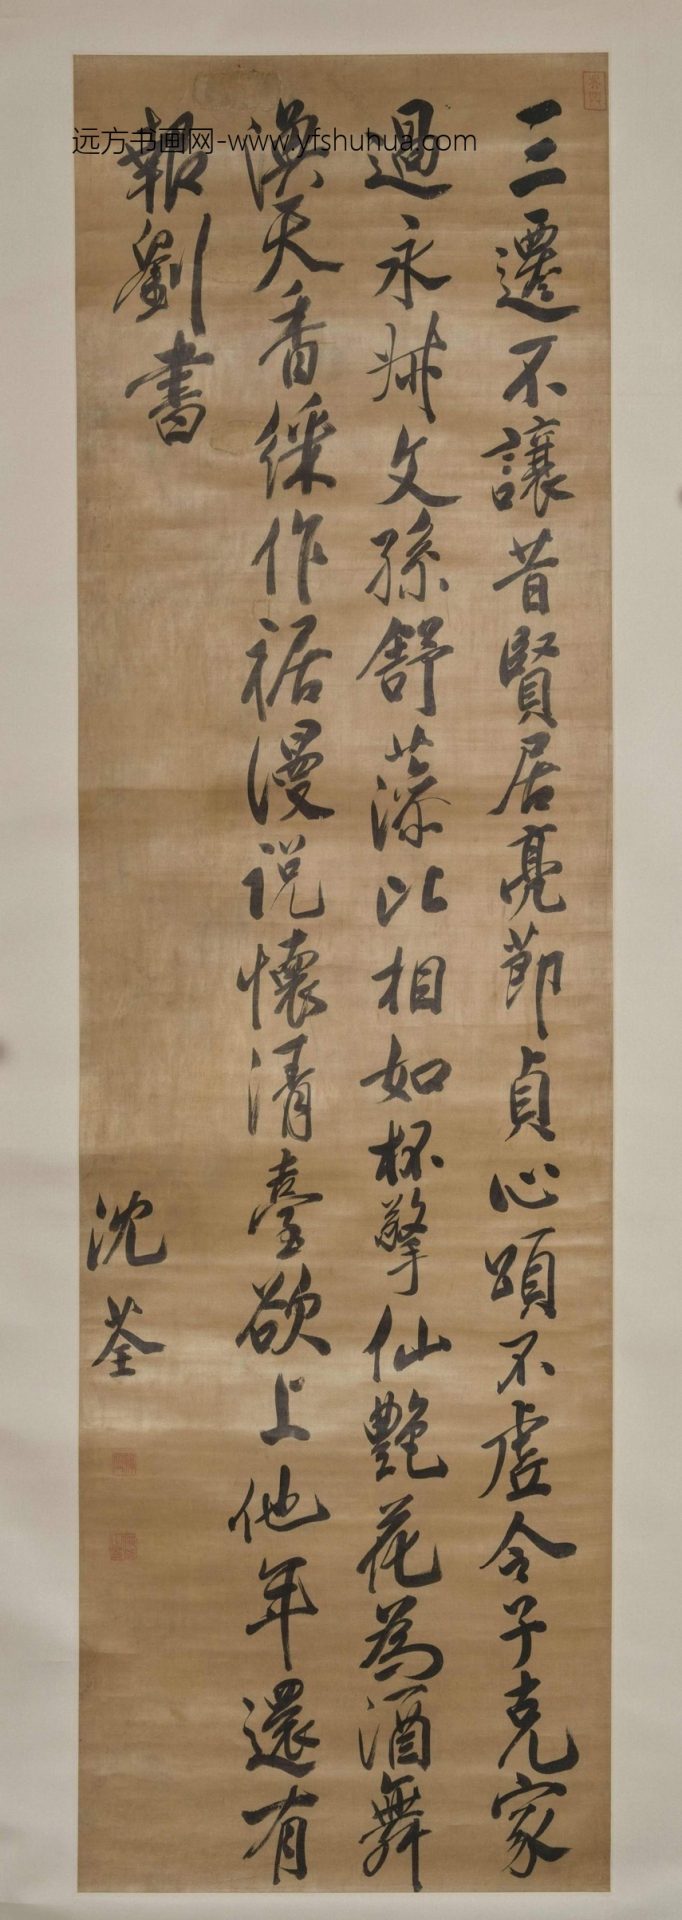 远方书画网-www.yfshuhua.com
三遷不讓昔賢居亮節貞心頌不虛令子克家
過永叔文孫舒藻比相如杯擎仙艷花為酒舞
渙天香綵作裾漫說懷清臺欲上他年還有
報劉書
沈荃